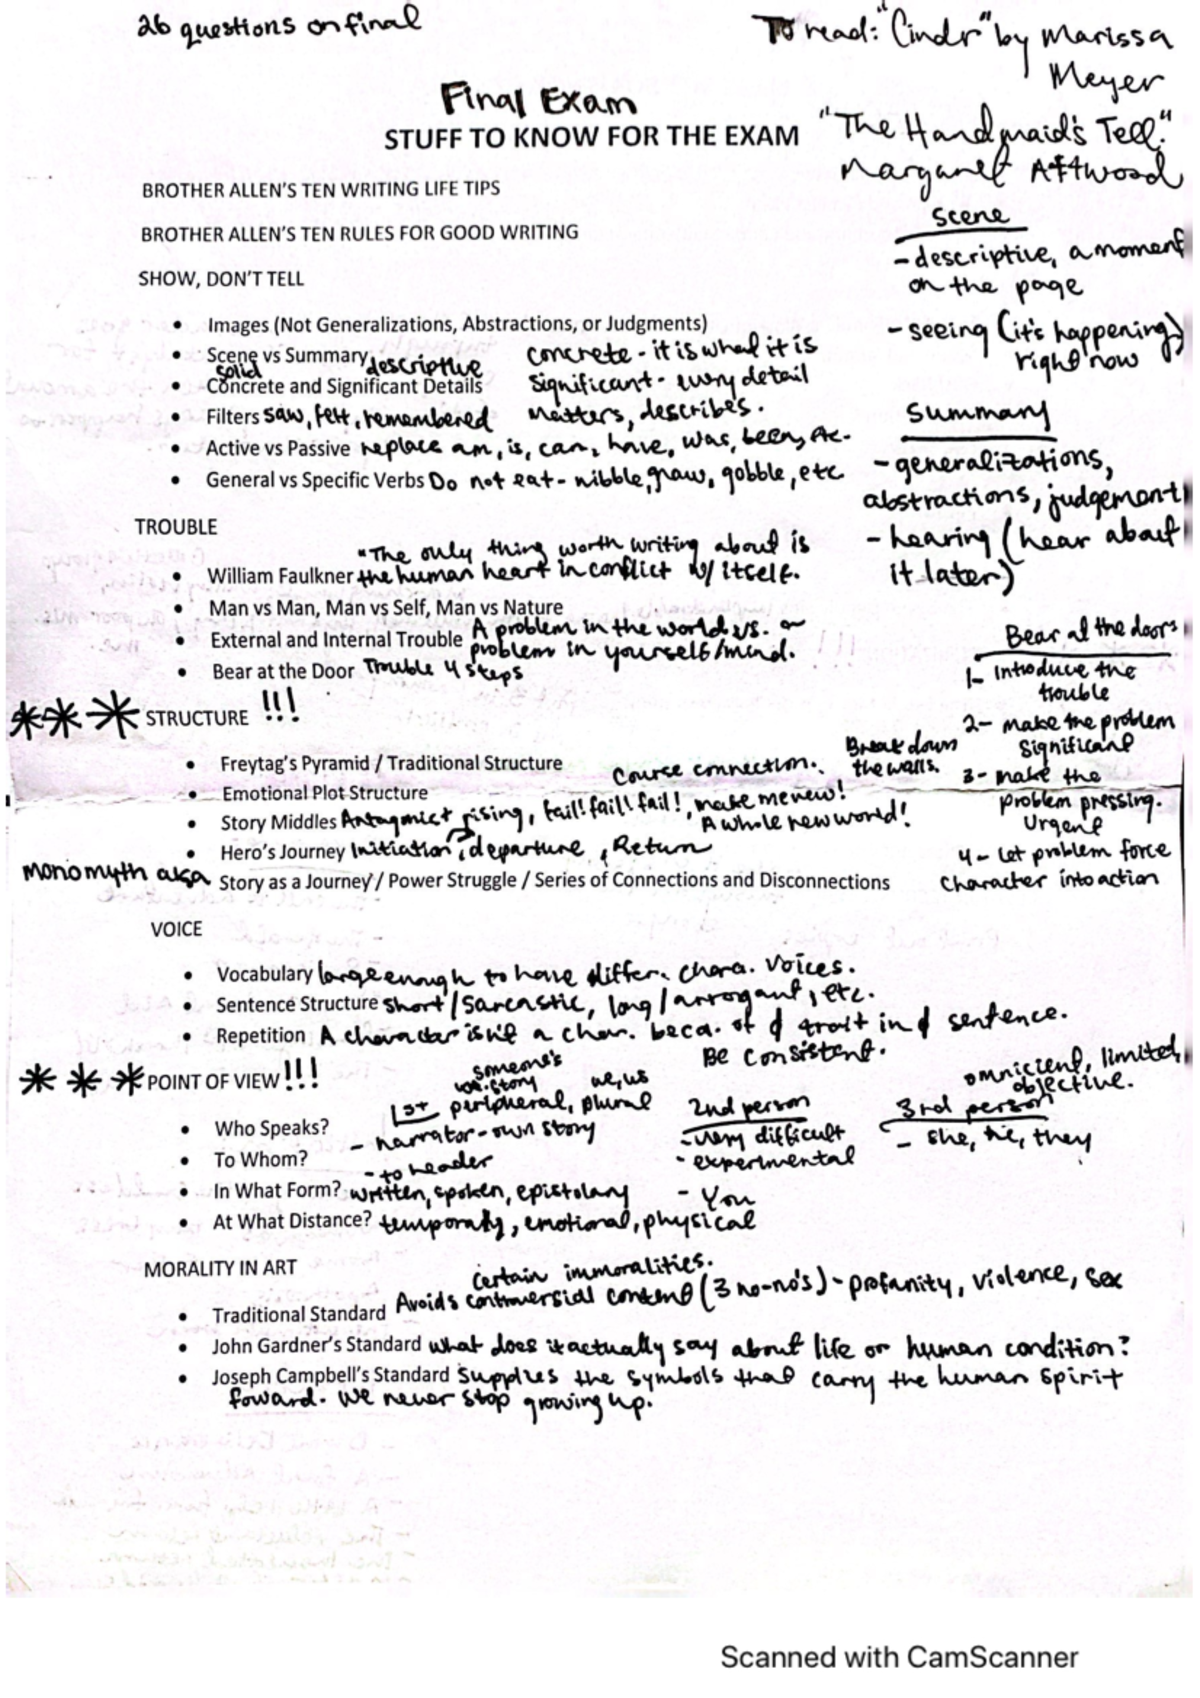 26 questions on final
To read: "Cindr" by Marissa
Meyer
"The Handmaid's Tell."
Margaret Attwood
Final Exam
STUFF TO KNOW FOR THE EXAM
BROTHER ALLEN'S TEN WRITING LIFE TIPS
BROTHER ALLEN'S TEN RULES FOR GOOD WRITING
SHOW, DON'T TELL
• Images (Not Generalizations, Abstractions, or Judgments)
• Scene vs Summary descriptive
solid
• Concrete and Significant Details
concrete - it is what it is
Significant - every detail
matters, describes.
• Filters saw, felt, remembered
• Active vs Passive replace am, is, can, have, was, been, etc.
• General vs Specific Verbs Do not eat - nibble, gnaw, gobble, etc
scene
- descriptive, a moment
on the page
- seeing (it's happening)
right now
Summary
- generalizations,
abstractions, judgement
- hearing (hear about
it later)
TROUBLE
• William Faulkner "The only thing worth writing about is
the human heart in conflict w/ itself.
• Man vs Man, Man vs Self, Man vs Nature
• External and Internal Trouble A problem in the world vs. a
problem in yourself/mind.
• Bear at the Door Trouble 4 steps
Bear at the doors
1- Introduce the
trouble
2- make the problem
Significant
3- make the
problem pressing.
Urgent
4- Let problem force
character into action
*** STRUCTURE !!!
• Freytag's Pyramid / Traditional Structure
• Emotional Plot Structure Course connection.
Break down
the walls.
• Story Middles Antagonist rising, fail! fail! fail!, make me new!
A whole new world!
• Hero's Journey Initiation, departure, Return
monomyth aka
• Story as a Journey / Power Struggle / Series of Connections and Disconnections
VOICE
• Vocabulary large enough to have differ. chara. voices.
• Sentence Structure short/sarcastic, long/arrogant, etc.
• Repetition A character isn't a char. beca. of trait in sentence.
Be consistent.
*** POINT OF VIEW !!!
• Who Speaks?
• To Whom?
• In What Form? written, spoken, epistolary
• At What Distance? temporaly, emotional, physical
someone's
story we, us
1st peripheral, plural
- narrator - own story
- to header
2nd person
- very difficult
- experimental
- You
omnicient, limited,
objective.
3rd person
- she, he, they
MORALITY IN ART
certain immoralities.
• Traditional Standard Avoids controversial content (3 no-no's) - profanity, violence, sex
• John Gardner's Standard what does it actually say about life or human condition?
• Joseph Campbell's Standard Supplies the symbols that carry the human spirit
foward. We never stop growing up.
Scanned with CamScanner